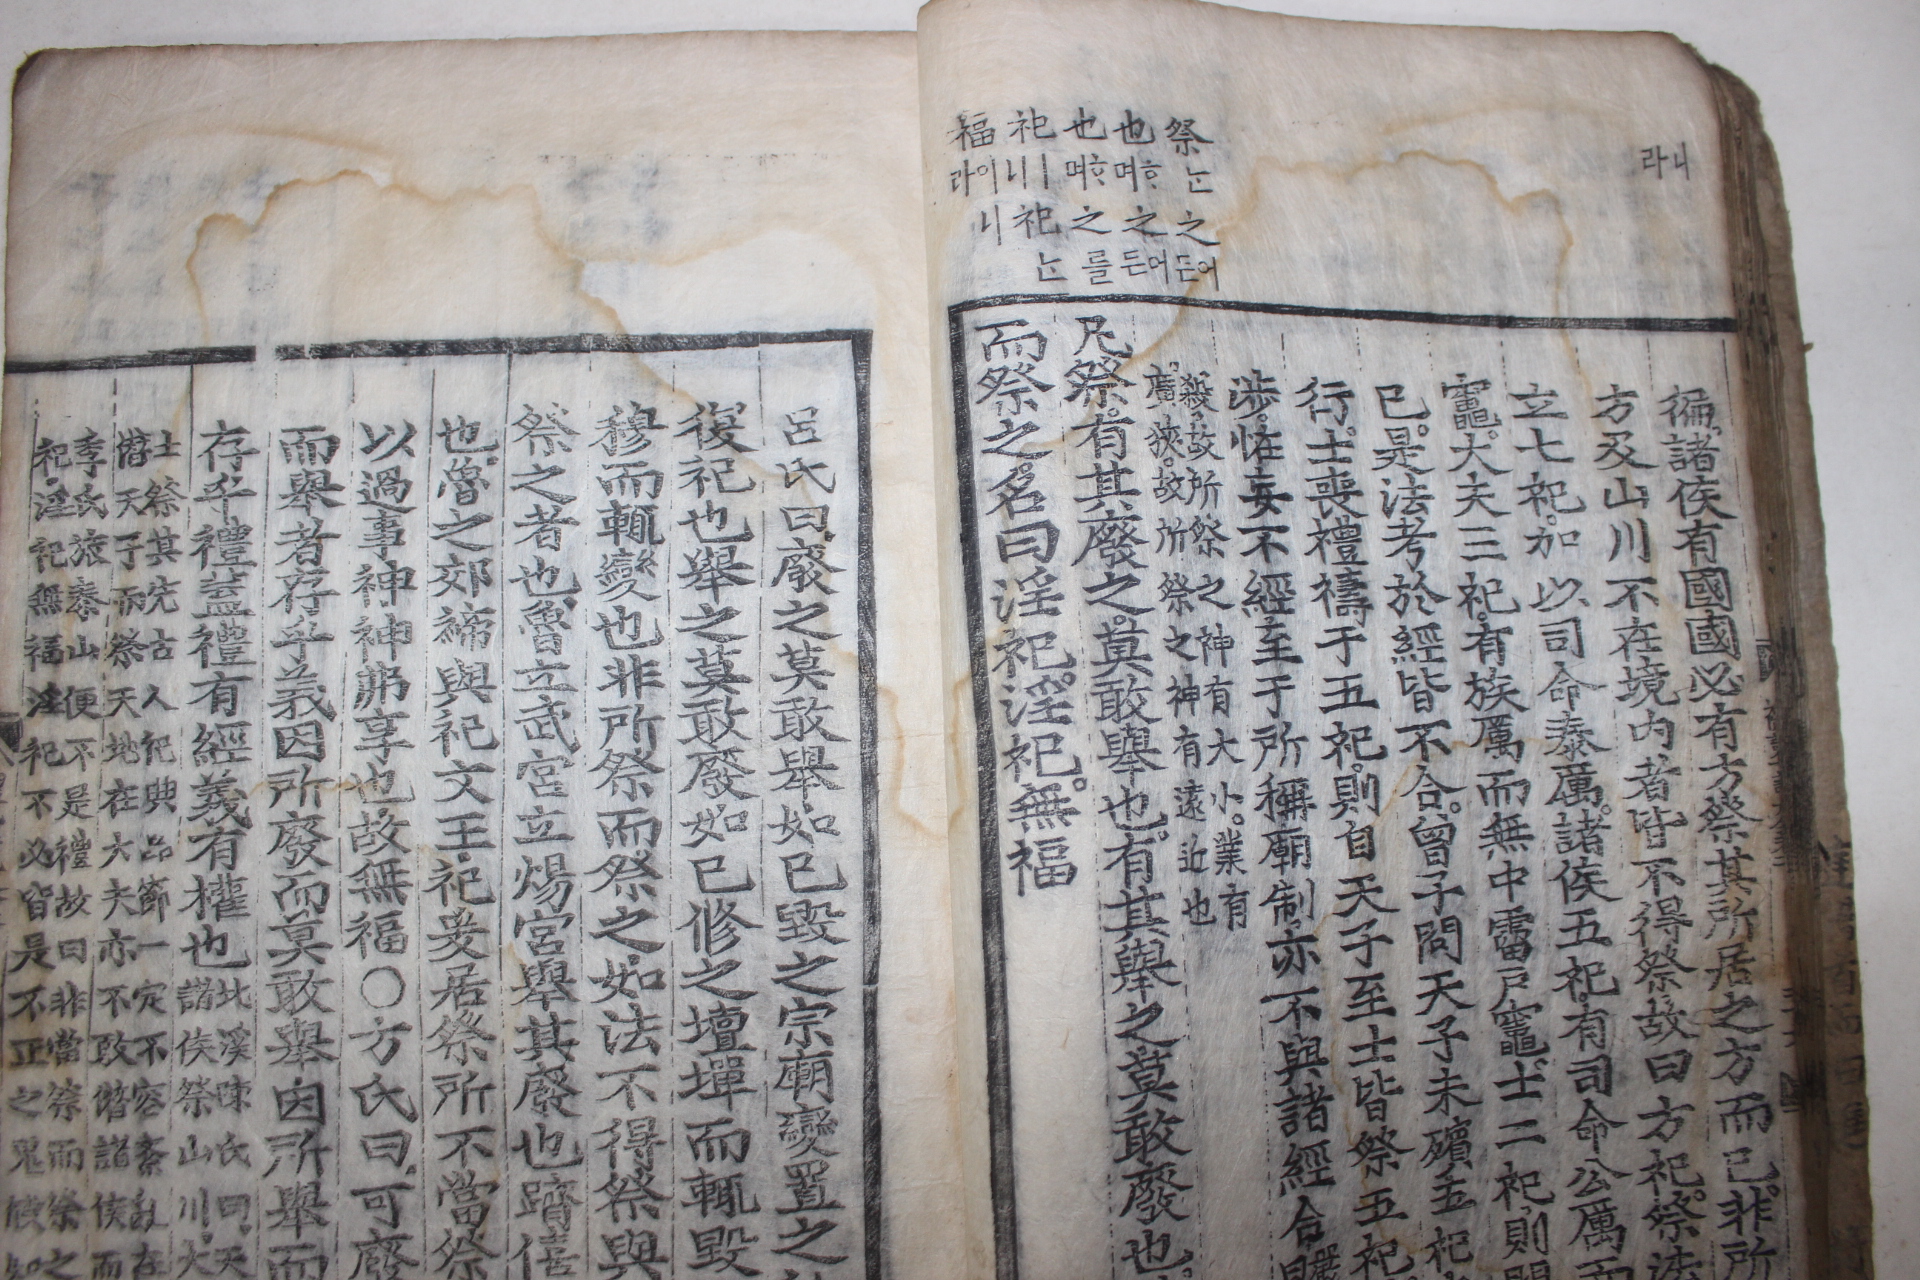 니라
祭는之어든
也ᄒᆞ며之어든
也ᄒᆞ며之를
祀ㅣ니祀는
福이니라
徧諸侯有國國必有方祭其所居之方而已非所
方及山川不在境內者皆不得祭故曰方祀祭法
立七祀加以司命泰厲諸侯五祀有司命公厲而
竈大夫三祀有族厲而無中霤戶竈士二祀則門
已是法考於經皆不合曾子問天子未殯五祀
行士喪禮禱于五祀則自天子至士皆祭五祀
涉怪妄不經至于所稱廟制亦不與諸經合
殺故所祭之神有大小業有
廣狹故所祭之神有遠近也
凡祭有其廢之莫敢擧也有其擧之莫敢廢也
而祭之名曰淫祀淫祀無福
呂氏曰廢之莫敢擧如已毀之宗廟變置之
復祀也擧之莫敢廢如已修之壇墠而輒毀
穆而輒變也非所祭而祭之如法不得祭與
祭之者也魯立武宮立煬宮擧其廢也躋僖
也魯之郊禘與祀文王祀爰居祭所不當祭
以過事神神弗享也故無福○方氏曰可廢
而擧者存乎義因所廢而莫敢擧因所擧而
存乎禮蓋禮有經義有權也
北溪陳氏曰天
諸侯祭山川大
士祭其先古人祀典品節一定不容紊亂在
僭天子而祭天地在大夫亦不敢僭諸侯而
季氏旅泰山便不是禮故曰非當祭而祭之
祀淫祀無福淫祀不必皆是不正之鬼